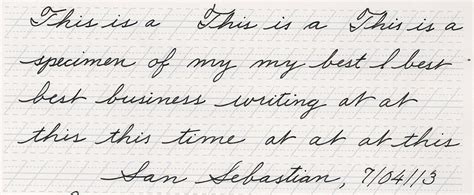 This is a This is a This is a
specimen of my my best l best
best business writing at at
this this time at at at this
San Sebastian, 7/04/13